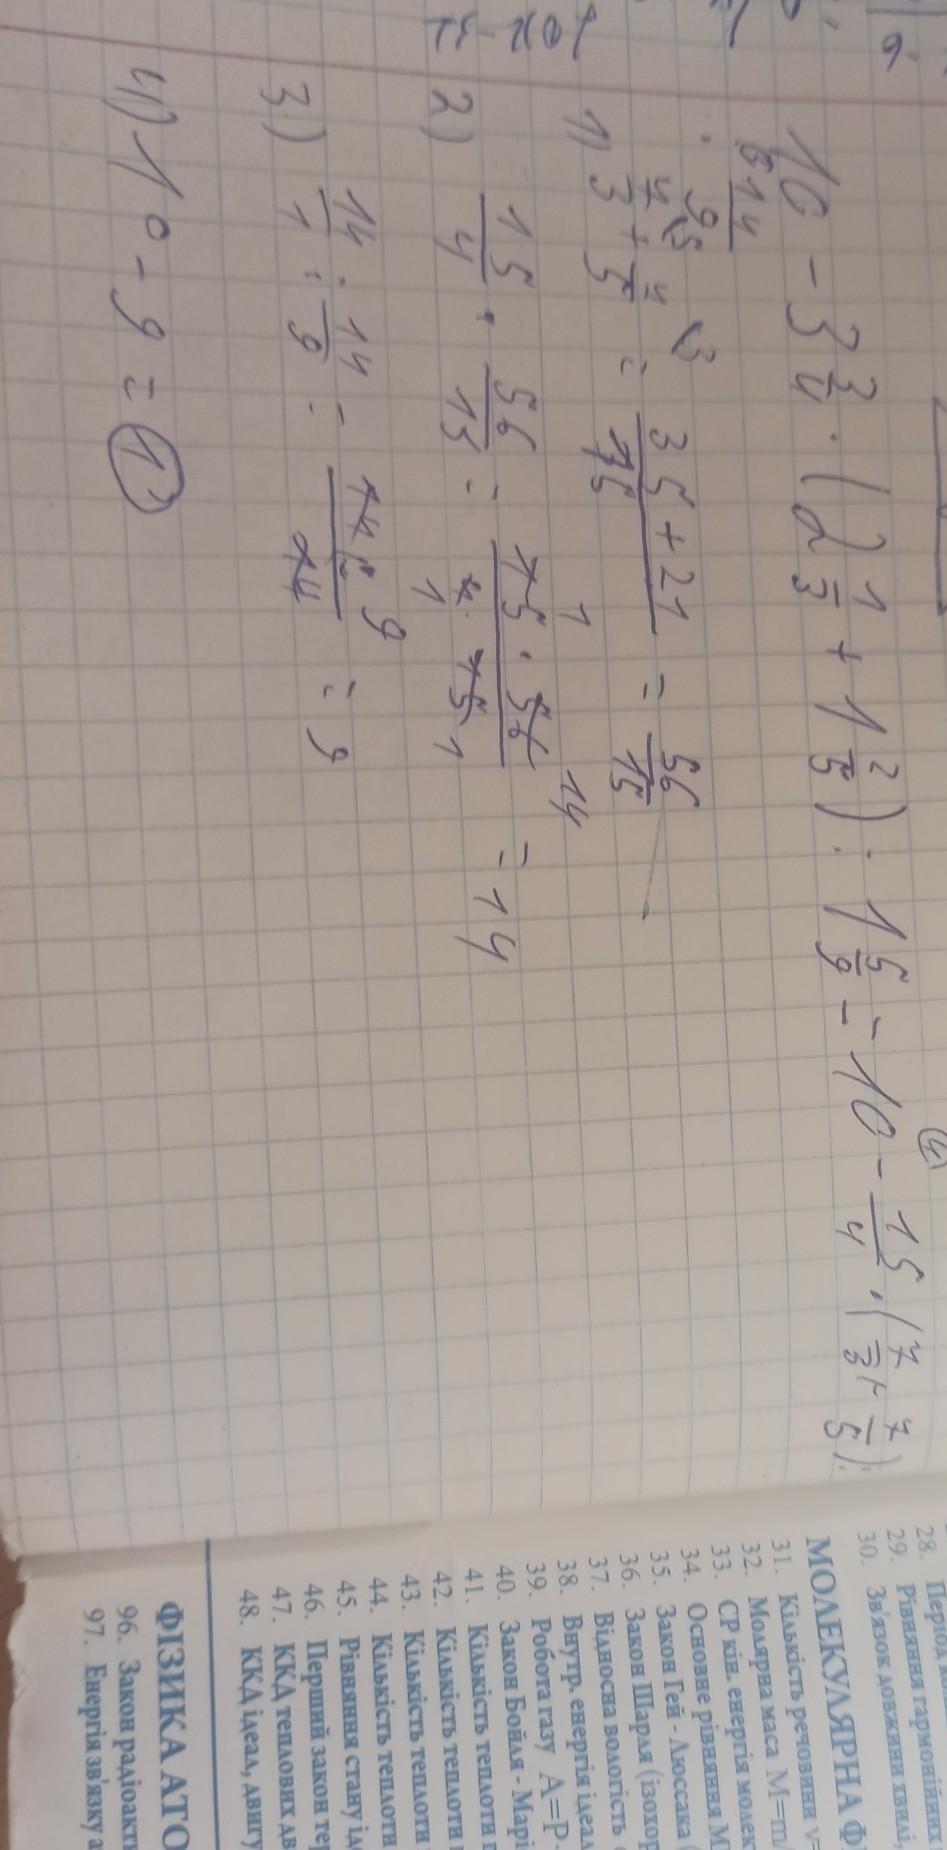 10 - 3 3/4 · (2 1/3 + 1 2/5) : 1 5/9 = 10 - 15/4 · (7/3 + 7/5) :
: 14/9
1) 7/3 + 7/5 = 35+21/15 = 56/15
2) 15/4 · 56/15 = 15 · 56/4 · 15 = 14
3) 14/1 : 14/9 = 14 · 9/14 = 9
4) 10 - 9 = 1
29. Рівняння гармонійних
30. Зв'язок довжини хвилі,
МОЛЕКУЛЯРНА Ф
31. Кількість речовини ν=
32. Молярна маса M=m/
33. СР кін. енергія молек
34. Основне рівняння М
35. Закон Гей - Люссака (
36. Закон Шарля (ізохор
37. Відносна вологість
38. Внутр. енергія ідеал
39. Робота газу A=P·
40. Закон Бойля - Марі
41. Кількість теплоти
42. Кількість теплоти
43. Кількість теплоти
44. Кількість теплоти
45. Рівняння стану ід
46. Перший закон тер
47. ККД теплових дв
48. ККД ідеал, двигу
ФІЗИКА АТО
96. Закон радіоакти
97. Енергія зв'язку а